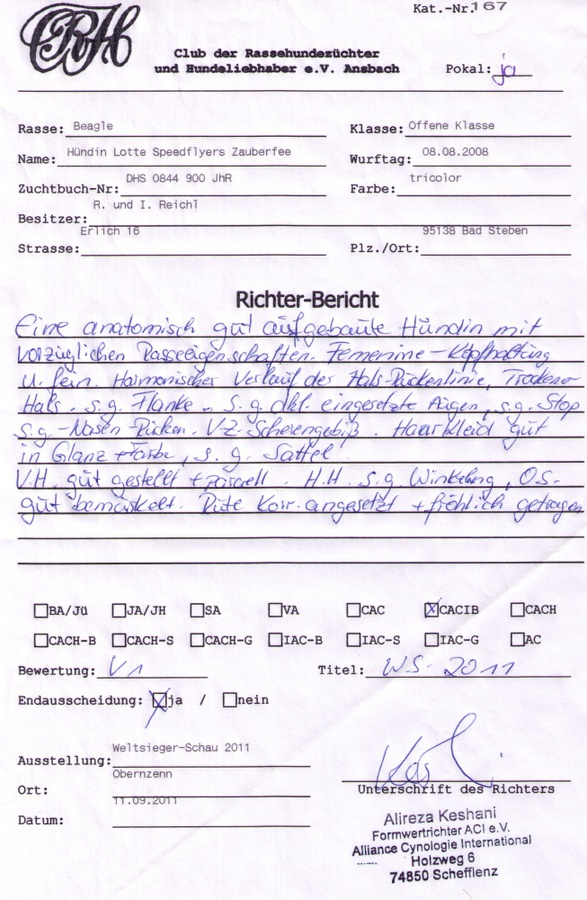 CRH
Kat.-Nr.167
Club der Rassehundezüchter
und Hundeliebhaber e.V. Ansbach
Pokal: ja
Rasse: Beagle
Klasse: Offene Klasse
Name: Hündin Lotte Speedflyers Zauberfee
Wurftag: 08.08.2008
Zuchtbuch-Nr: DHS 0844 900 UhR
Farbe: tricolor
Besitzer: R. und I. Reichl
Strasse: Erlich 16
Plz./Ort: 95138 Bad Steben
Richter-Bericht
Eine anatomisch gut aufgebaute Hündin mit
vorzüglichen Rasseeigenschaften. Femenine - Kopfhaltung
u. fein. Harmonischer Verlauf der Hals-Rückenlinie, Trockener
Hals. s.g. Flanke. s.g. dkl. eingesetzte Augen, s.g. Stop
s.g.-Nasen-Rücken. V-Z. Scherengebiß. Haarkleid gut
in Glanz + Farbe, s.g. Sattel.
V.H. gut gestellt + parallel. H.H. s.g. Winkelung, O.S.
gut bemuskelt. Rute Korr. angesetzt + fröhlich getragen
BA/Jü JA/JH SA VA CAC CACIB CACH
CACH-B CACH-S CACH-G IAC-B IAC-S IAC-G AC
Bewertung: V1
Titel: WS-2011
Endausscheidung: ja / nein
Ausstellung: Weltsieger-Schau 2011
Ort: Obernzenn
Datum: 11.09.2011
Unterschrift des Richters
Alireza Keshani
Formwertrichter ACI e.V.
Alliance Cynologie International
Holzweg 6
74850 Schefflenz